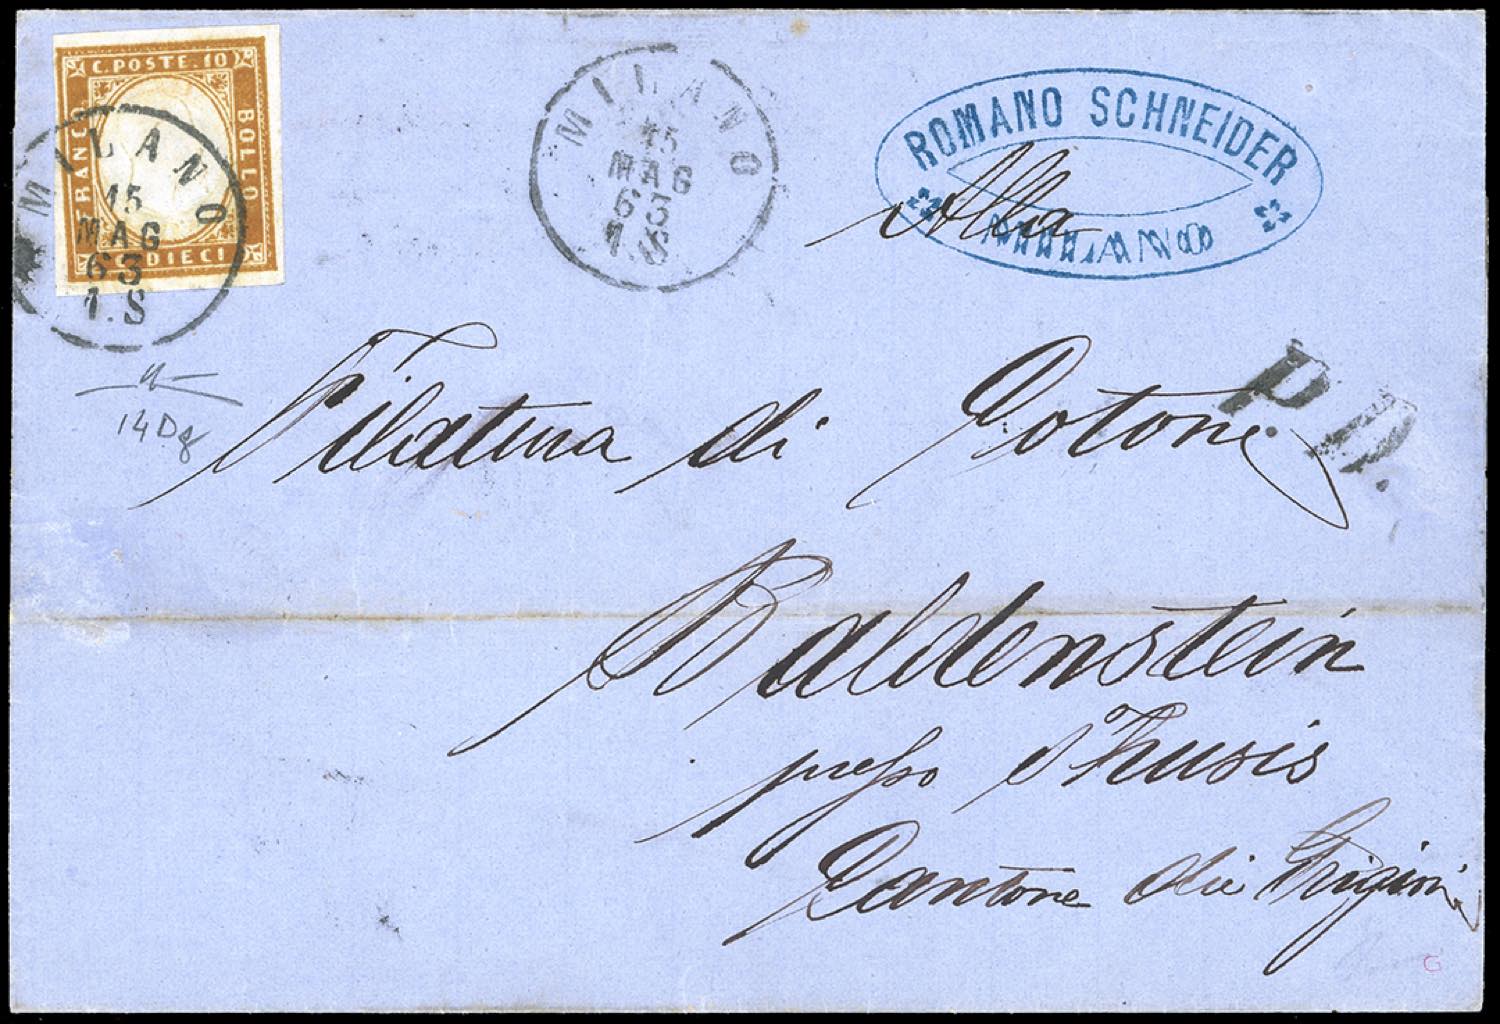 C. POSTE. 10
FRANCO
BOLLO
C. DIECI
MILANO
15
MAG
63
1.S
MILANO
15
MAG
63
1.S
ROMANO SCHNEIDER
MILANO
Alla
P.D.
14Dg
Filatura di Cotone
Baldenstein
presso Thusis
Cantone dei Grigioni